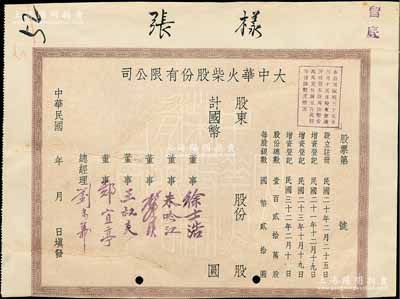 張樣
留底
52
司公限有份股柴火華中大
股票第 號
設立註冊 民國二十年二月二十五日
增資登記 民國二十一年十二月十九日
增資登記 民國二十三年十月十九日
增資登記 民國三十二年二月十日
股份總數 壹百貳拾萬股
每股銀數 國幣貳拾圓
股東
計國幣
股份 股
圓
董事 徐士浩
董事 朱吟江
董事
董事
董事 鄭宜亭
總經理 劉
中華民國 年 月 日填發